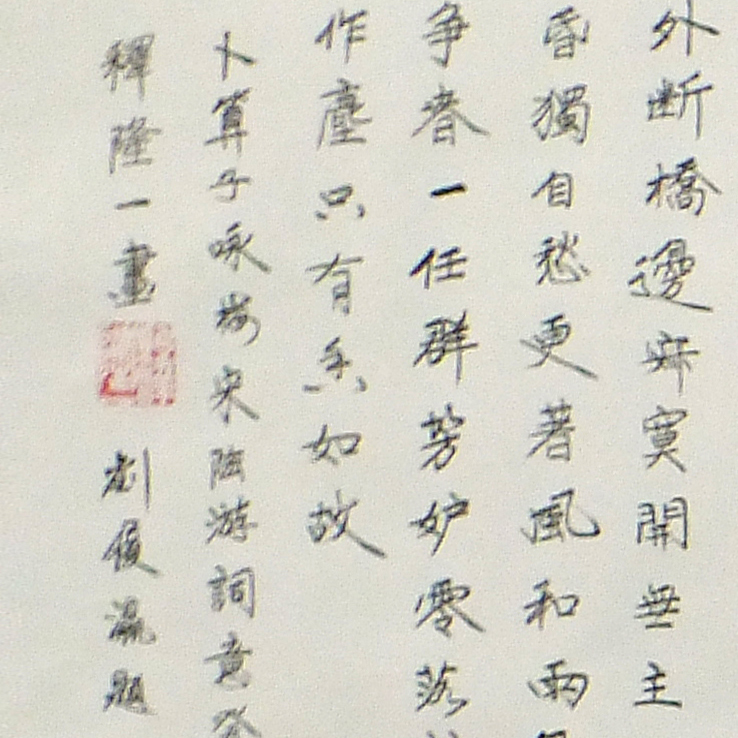 外断橋邊寂寞開無主
昏獨自愁更著風和雨
争春一任群芳妒零落
作塵只有香如故
卜算子咏梅宋陸游詞意
釋隆一畫
劉俊題